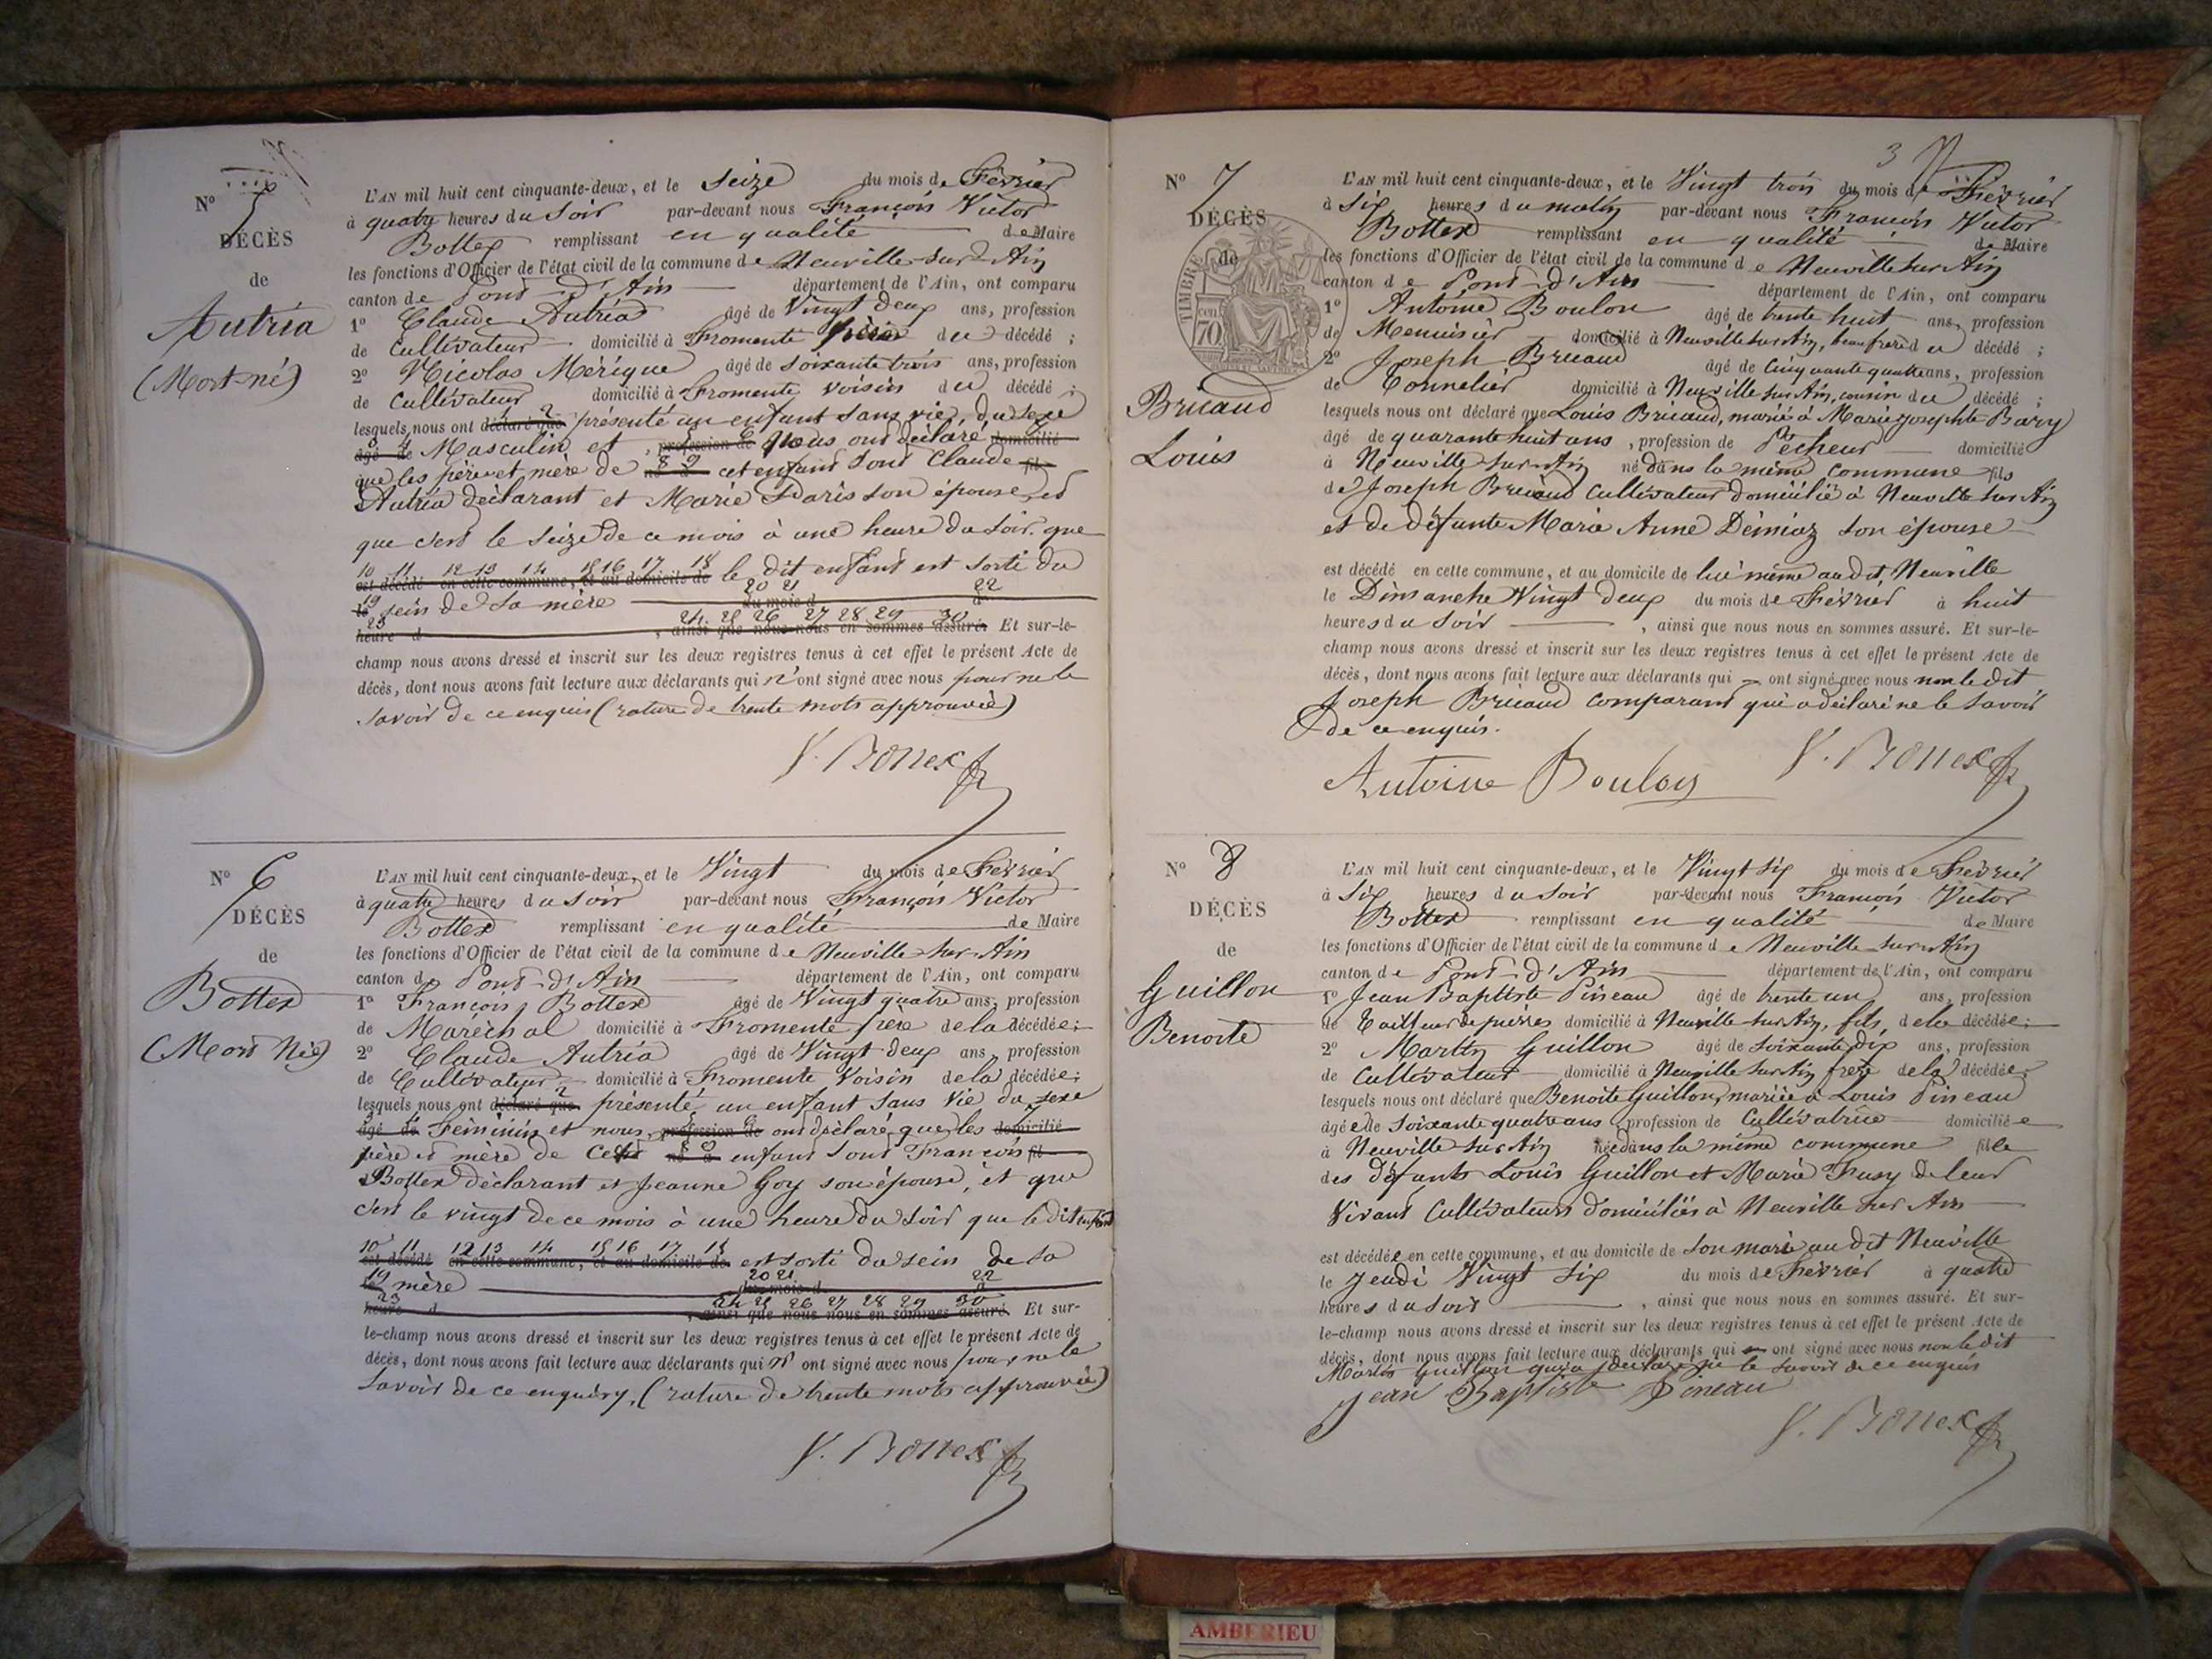 N° 5
DÉCÈS
de
Autria
(Mort-né)
L'AN mil huit cent cinquante-deux, et le Seize du mois de Février
à quatre heures du Soir par-devant nous François Victor
Bottex remplissant en qualité de Maire
les fonctions d'Officier de l'état civil de la commune de Neuville-sur-Ain
canton de Pont-d'Ain département de l'Ain, ont comparu
1° Claude Autria âgé de Vingt deux ans, profession
de Cultivateur domicilié à Fromente père du décédé ;
2° Nicolas Mérique âgé de soixante trois ans, profession
de Cultivateur domicilié à Fromente voisin du décédé ;
lesquels nous ont déclaré que présenté un enfant sans vie, du sexe
âgé de Masculin et , profession de Nous ont déclaré domicilié
que les père et mère de né à cet enfant sont Claude fils
Autria déclarant et Marie Paris son épouse, et
que c'est le seize de ce mois à une heure du soir que
10 11 12 13 14 15 16 17 18
est décédé en cette commune, et au domicile de le dit enfant est sorti du
19 20 21 22
le sein de sa mère du mois d à
23 24 25 26 27 28 29 30
heure d , ainsi que nous nous en sommes assuré. Et sur-le-
champ nous avons dressé et inscrit sur les deux registres tenus à cet effet le présent Acte de
décès, dont nous avons fait lecture aux déclarants qui n'ont signé avec nous pour ne le
savoir de ce enquis (rature de trente mots approuvée)
V. Bottex
N° 6
DÉCÈS
de
Bottex
(Mort Née)
L'AN mil huit cent cinquante-deux, et le Vingt du mois de Février
à quatre heures du soir par-devant nous François Victor
Bottex remplissant en qualité de Maire
les fonctions d'Officier de l'état civil de la commune de Neuville-sur-Ain
canton de Pont-d'Ain département de l'Ain, ont comparu
1° François Bottex âgé de Vingt quatre ans, profession
de Maréchal domicilié à Fromente père de la décédée ;
2° Claude Autria âgé de Vingt deux ans, profession
de Cultivateur domicilié à Fromente Voisin de la décédée ;
lesquels nous ont déclaré que présenté un enfant sans vie du sexe
âgé de Féminin et nous, profession de ont déclaré que les domicilié
père et mère de Cet né à enfant sont François fil
Bottex déclarant et Jeanne Goy son épouse, et que
c'est le vingt de ce mois à une heure du soir que le dit enfant
10 11 12 13 14 15 16 17 18
est décédé en cette commune, et au domicile de est sorti du sein de sa
19 20 21 22
le mère du mois d à
23 24 25 26 27 28 29 30
heure d , ainsi que nous nous en sommes assuré. Et sur-
le-champ nous avons dressé et inscrit sur les deux registres tenus à cet effet le présent Acte de
décès, dont nous avons fait lecture aux déclarants qui n'ont signé avec nous pour ne le
savoir de ce enquéry, (rature de trente mots approuvée)
V. Bottex
3
N° 7
DÉCÈS
de
TIMBRE
70
Bruaud
Louis
L'AN mil huit cent cinquante-deux, et le Vingt trois du mois de Février
à Six heures du matin par-devant nous François Victor
Bottex remplissant en qualité de Maire
les fonctions d'Officier de l'état civil de la commune de Neuville sur Ain
canton de Pont-d'Ain département de l'Ain, ont comparu
1° Antoine Boulon âgé de trente huit ans, profession
de Menuisier domicilié à Neuville sur Ain, beau frère du décédé ;
2° Joseph Bruaud âgé de Cinquante quatre ans, profession
de Tonnelier domicilié à Neuville sur Ain, cousin du décédé ;
lesquels nous ont déclaré que Louis Bruaud, marié à Marie Josephte Bary
âgé de quarante huit ans, profession de Pêcheur domicilié
à Neuville-sur-Ain né dans la même commune fils
de Joseph Bruaud Cultivateur domicilié à Neuville sur Ain
et de défunte Marie Anne Démiaz son épouse
est décédé en cette commune, et au domicile de lui même au dit Neuville
le Dimanche Vingt deux du mois de Février à huit
heures du Soir , ainsi que nous nous en sommes assuré. Et sur-le-
champ nous avons dressé et inscrit sur les deux registres tenus à cet effet le présent Acte de
décès, dont nous avons fait lecture aux déclarants qui ont signé avec nous non le dit
Joseph Bruaud comparant qui a déclaré ne le savoir
de ce enquis.
Antoine Boulon V. Bottex
N° 8
DÉCÈS
de
Guillon
Benoite
L'AN mil huit cent cinquante-deux, et le Vingt six du mois de Février
à Six heures du soir par-devant nous François Victor
Bottex remplissant en qualité de Maire
les fonctions d'Officier de l'état civil de la commune de Neuville-sur-Ain
canton de Pont-d'Ain département de l'Ain, ont comparu
1° Jean Baptiste Pineau âgé de trente un ans, profession
de Tailleur de pierres domicilié à Neuville sur Ain, fils de la décédée ;
2° Martin Guillon âgé de soixante dix ans, profession
de Cultivateur domicilié à Neuville sur Ain frère de la décédée ;
lesquels nous ont déclaré que Benoite Guillon, mariée à Louis Pineau
âgée de soixante quatre ans, profession de Cultivatrice domiciliée
à Neuville sur Ain née dans la même commune fille
des défunts Louis Guillon et Marie Fusy de leur
Vivant Cultivateurs domiciliés à Neuville sur Ain
est décédée en cette commune, et au domicile de son mari au dit Neuville
le Jeudi Vingt six du mois de Février à quatre
heures du soir , ainsi que nous nous en sommes assuré. Et sur-
le-champ nous avons dressé et inscrit sur les deux registres tenus à cet effet le présent Acte de
décès, dont nous avons fait lecture aux déclarants qui ont signé avec nous non le dit
Martin Guillon qui a déclaré ne le savoir de ce enquis
Jean Baptiste Pineau
V. Bottex
AMBERIEU